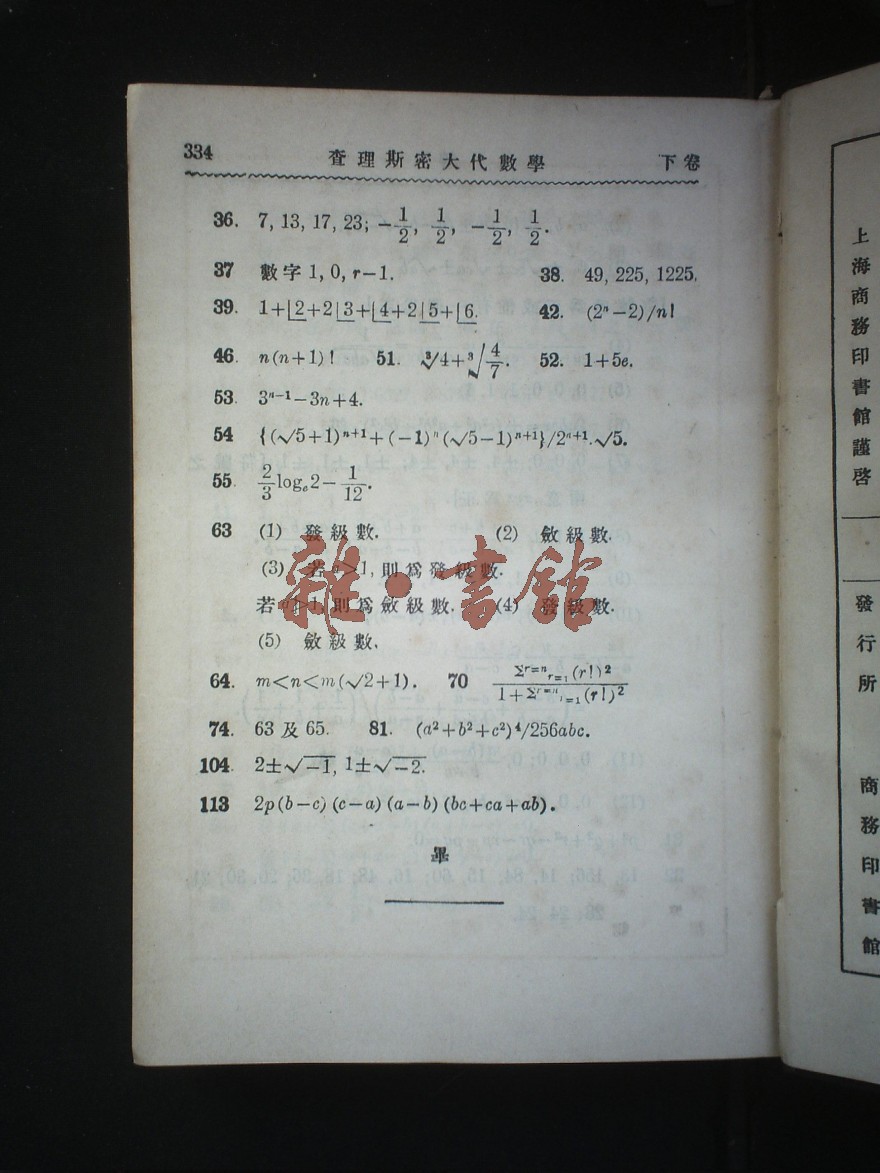 334 查理斯密大代數學 下卷
36. 7, 13, 17, 23; −1/2, 1/2, −1/2, 1/2.
37 數字 1, 0, r−1. 38. 49, 225, 1225.
39. 1+|2+2|3+|4+2|5+|6. 42. (2ⁿ−2)/n!
46. n(n+1)! 51. ∛4+∛(4/7). 52. 1+5e.
53. 3ⁿ⁻¹−3n+4.
54 {(√5+1)ⁿ⁺¹+(−1)ⁿ(√5−1)ⁿ⁺¹}/2ⁿ⁺¹.√5.
55. 2/3 logₑ2−1/12.
63 (1) 發級數. (2) 斂級數.
(3) 若 >1, 則爲發級數.
若 1, 則爲斂級數. (4) 發級數.
(5) 斂級數.
64. m<n<m(√2+1). 70 Σʳ⁼ⁿᵣ₌₁(r!)²/1+Σʳ⁼ⁿᵣ₌₁(r!)²
74. 63 及 65. 81. (a²+b²+c²)⁴/256abc.
104. 2±√−1, 1±√−2.
113 2p(b−c)(c−a)(a−b)(bc+ca+ab).
畢
雜·書館
上海商務印書館謹啓
發行所
商務印書館